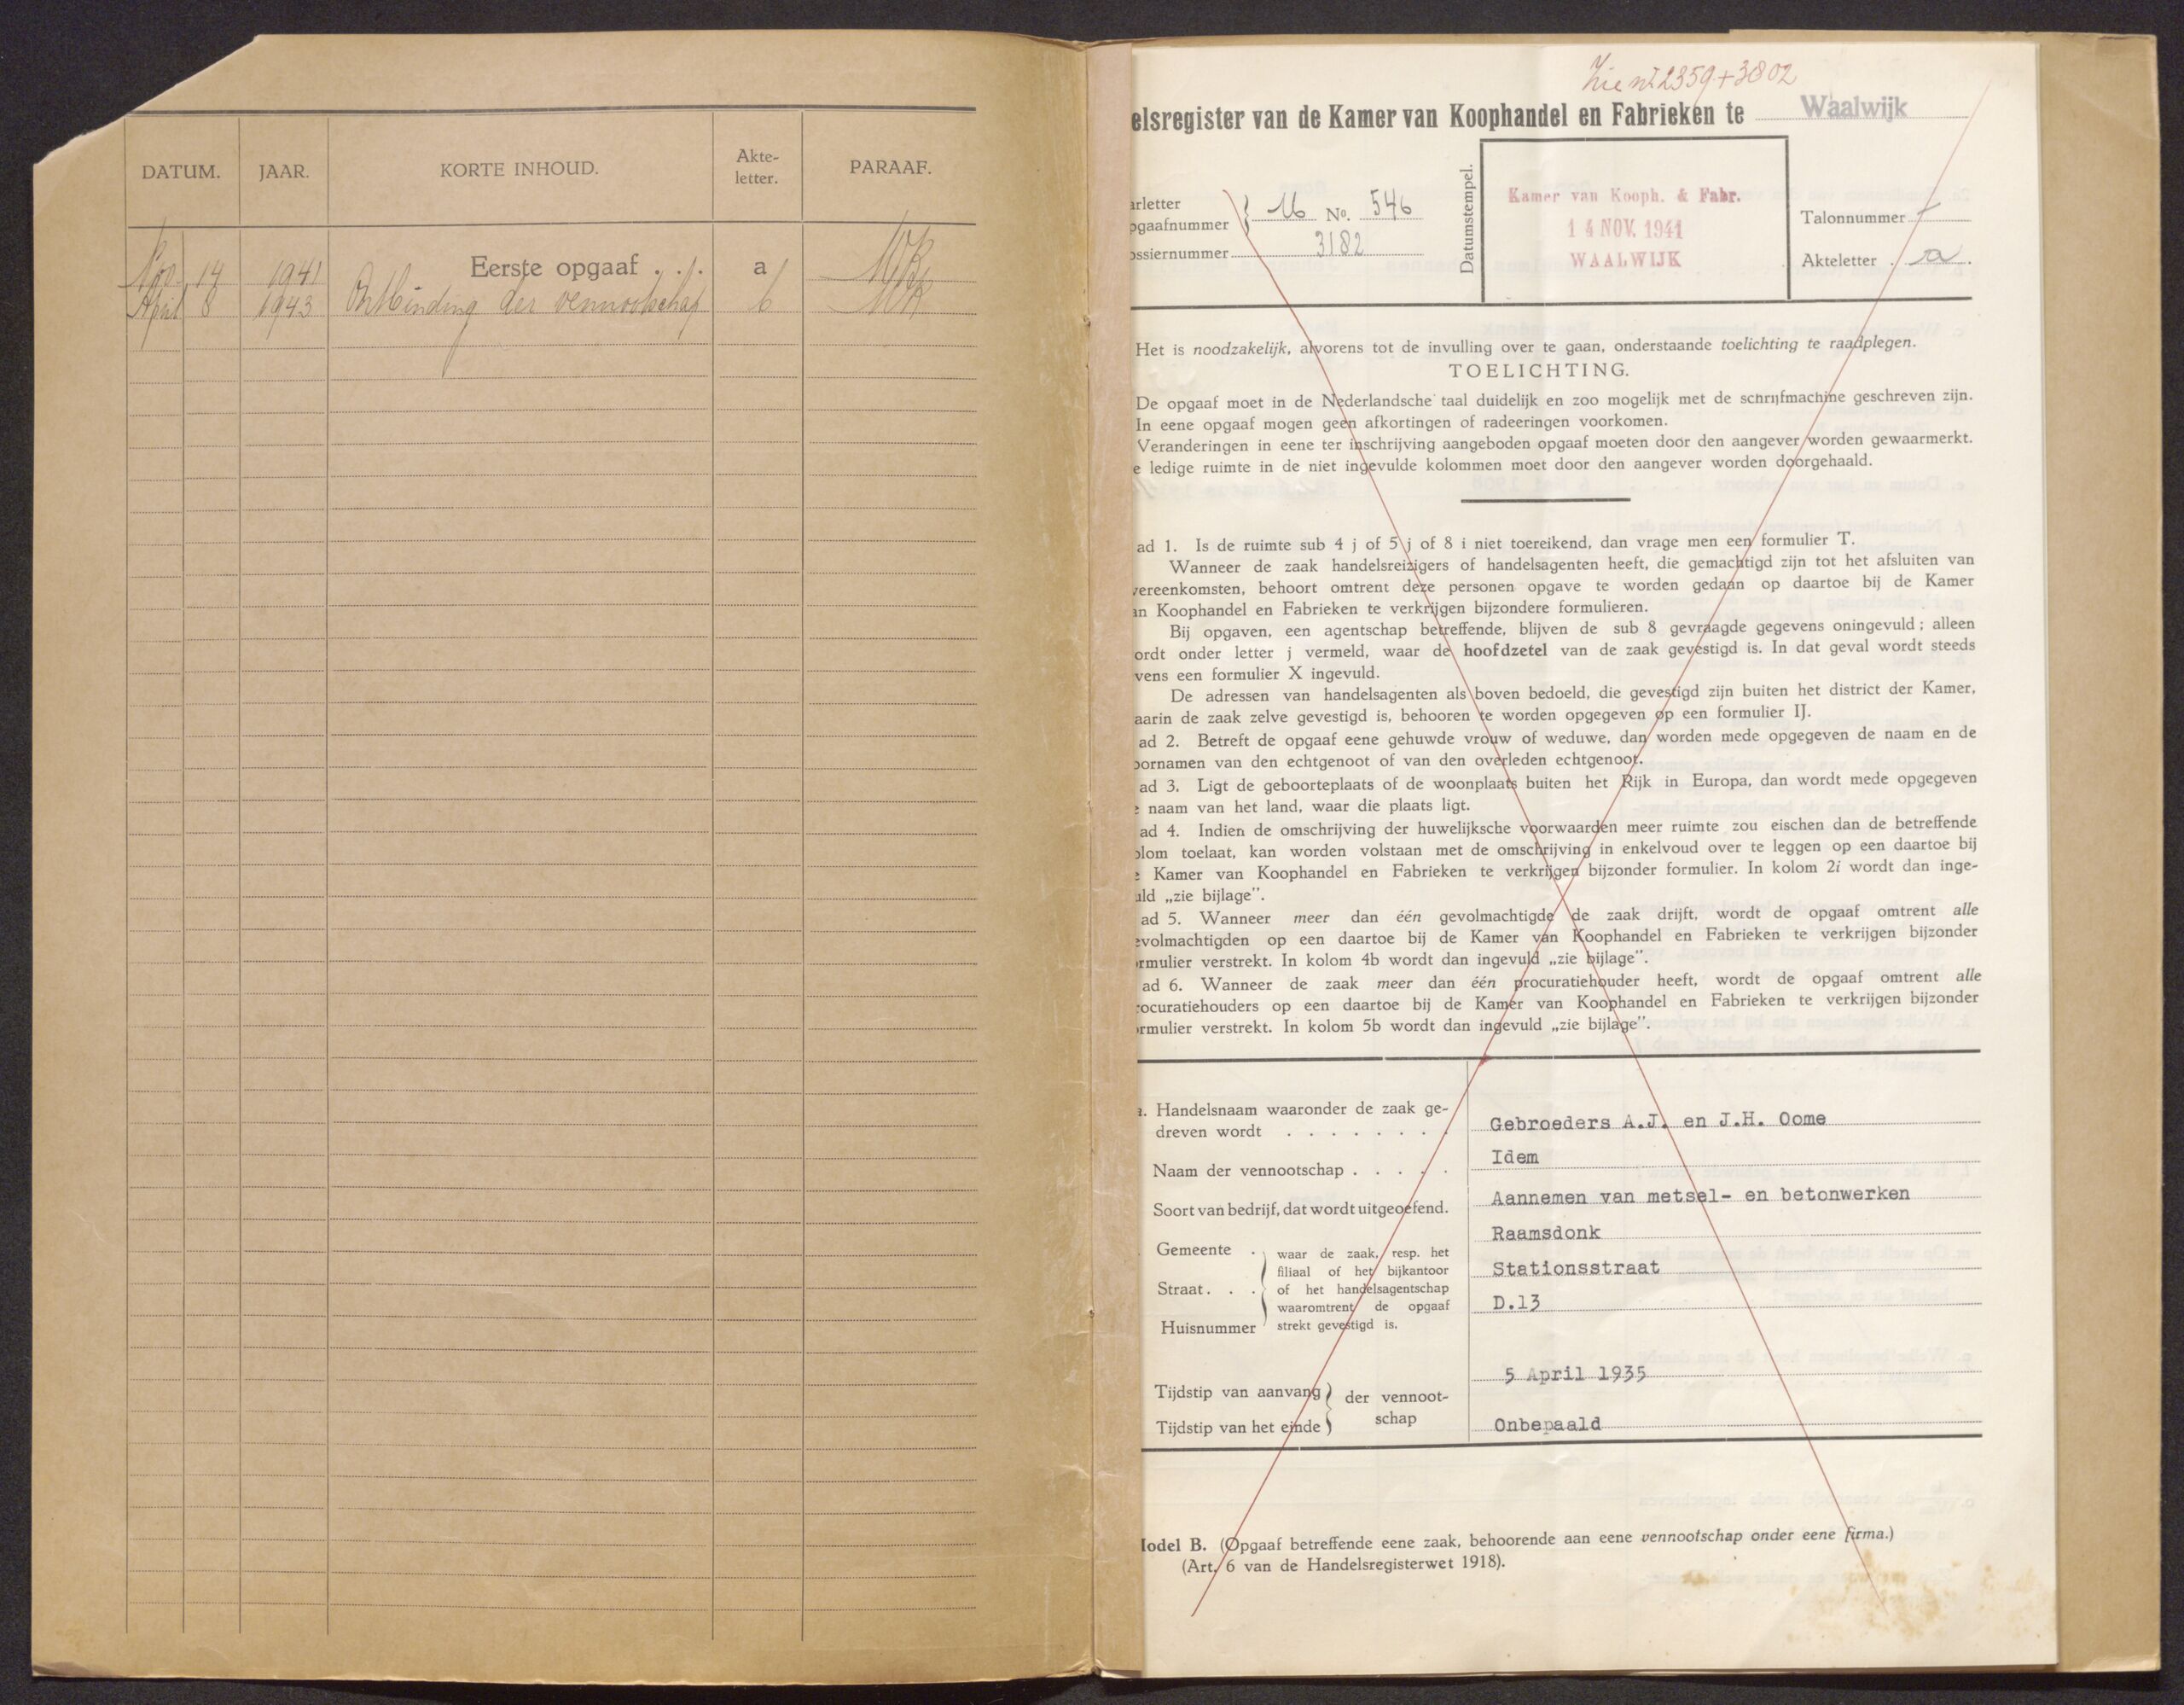 DATUM. JAAR. KORTE INHOUD. Akte-letter. PARAAF.
Nov. 14 1941 Eerste opgaaf . . . a
April 8 1943 Ontbinding der vennootschap b
Zie no 2359 + 3802
elsregister van de Kamer van Koophandel en Fabrieken te Waalwijk
arletter
pgaafnummer
No. 546
ossiernummer 3182
Datumstempel.
Kamer van Kooph. & Fabr.
14 NOV. 1941
WAALWIJK
Talonnummer
Akteletter a.
Het is noodzakelijk, alvorens tot de invulling over te gaan, onderstaande toelichting te raadplegen.
TOELICHTING.
De opgaaf moet in de Nederlandsche taal duidelijk en zoo mogelijk met de schrijfmachine geschreven zijn.
In eene opgaaf mogen geen afkortingen of radeeringen voorkomen.
Veranderingen in eene ter inschrijving aangeboden opgaaf moeten door den aangever worden gewaarmerkt.
e ledige ruimte in de niet ingevulde kolommen moet door den aangever worden doorgehaald.
ad 1. Is de ruimte sub 4 j of 5 j of 8 i niet toereikend, dan vrage men een formulier T.
Wanneer de zaak handelsreizigers of handelsagenten heeft, die gemachtigd zijn tot het afsluiten van
vereenkomsten, behoort omtrent deze personen opgave te worden gedaan op daartoe bij de Kamer
an Koophandel en Fabrieken te verkrijgen bijzondere formulieren.
Bij opgaven, een agentschap betreffende, blijven de sub 8 gevraagde gegevens oningevuld; alleen
ordt onder letter j vermeld, waar de hoofdzetel van de zaak gevestigd is. In dat geval wordt steeds
vens een formulier X ingevuld.
De adressen van handelsagenten als boven bedoeld, die gevestigd zijn buiten het district der Kamer,
aarin de zaak zelve gevestigd is, behooren te worden opgegeven op een formulier IJ.
ad 2. Betreft de opgaaf eene gehuwde vrouw of weduwe, dan worden mede opgegeven de naam en de
oornamen van den echtgenoot of van den overleden echtgenoot.
ad 3. Ligt de geboorteplaats of de woonplaats buiten het Rijk in Europa, dan wordt mede opgegeven
e naam van het land, waar die plaats ligt.
ad 4. Indien de omschrijving der huwelijksche voorwaarden meer ruimte zou eischen dan de betreffende
olom toelaat, kan worden volstaan met de omschrijving in enkelvoud over te leggen op een daartoe bij
e Kamer van Koophandel en Fabrieken te verkrijgen bijzonder formulier. In kolom 2i wordt dan inge-
uld „zie bijlage”.
ad 5. Wanneer meer dan één gevolmachtigde de zaak drijft, wordt de opgaaf omtrent alle
evolmachtigden op een daartoe bij de Kamer van Koophandel en Fabrieken te verkrijgen bijzonder
rmulier verstrekt. In kolom 4b wordt dan ingevuld „zie bijlage”.
ad 6. Wanneer de zaak meer dan één procuratiehouder heeft, wordt de opgaaf omtrent alle
rocuratiehouders op een daartoe bij de Kamer van Koophandel en Fabrieken te verkrijgen bijzonder
rmulier verstrekt. In kolom 5b wordt dan ingevuld „zie bijlage”.
a. Handelsnaam waaronder de zaak ge-
dreven wordt . . . . . . . . Gebroeders A.J. en J.H. Oome
Naam der vennootschap . . . . . Idem
Soort van bedrijf, dat wordt uitgeoefend. Aannemen van metsel- en betonwerken
Gemeente . Raamsdonk
Straat . . . Stationsstraat
Huisnummer D.13
waar de zaak, resp. het
filiaal of het bijkantoor
of het handelsagentschap
waaromtrent de opgaaf
strekt gevestigd is.
Tijdstip van aanvang 5 April 1935
Tijdstip van het einde Onbepaald
der vennoot-
schap
Model B. (Opgaaf betreffende eene zaak, behoorende aan eene vennootschap onder eene firma.)
(Art. 6 van de Handelsregisterwet 1918).